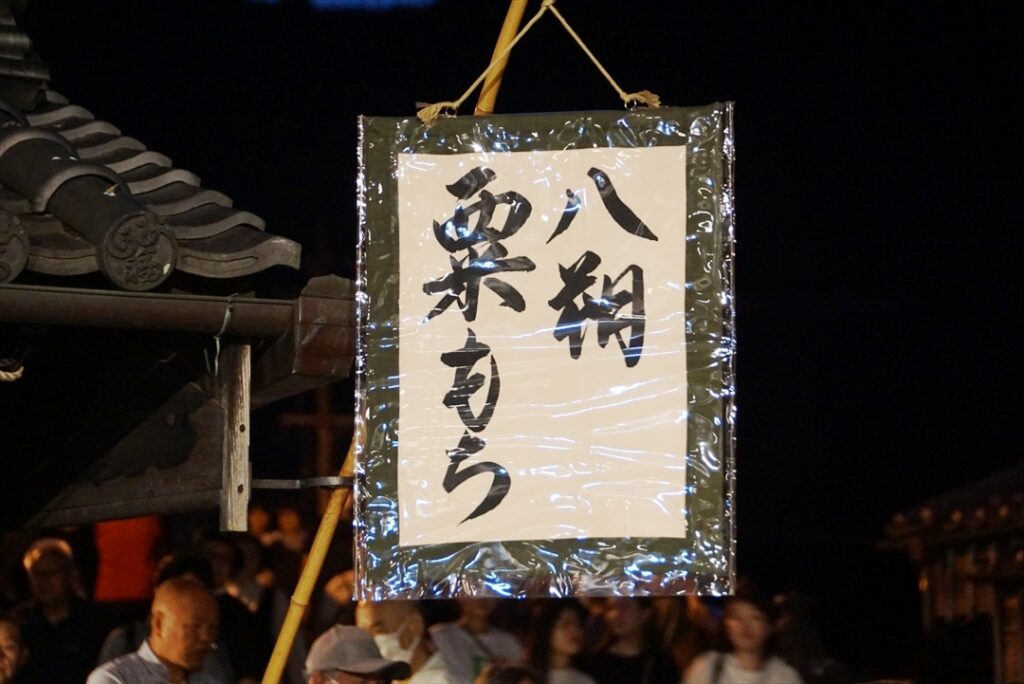 八朔
粟もち